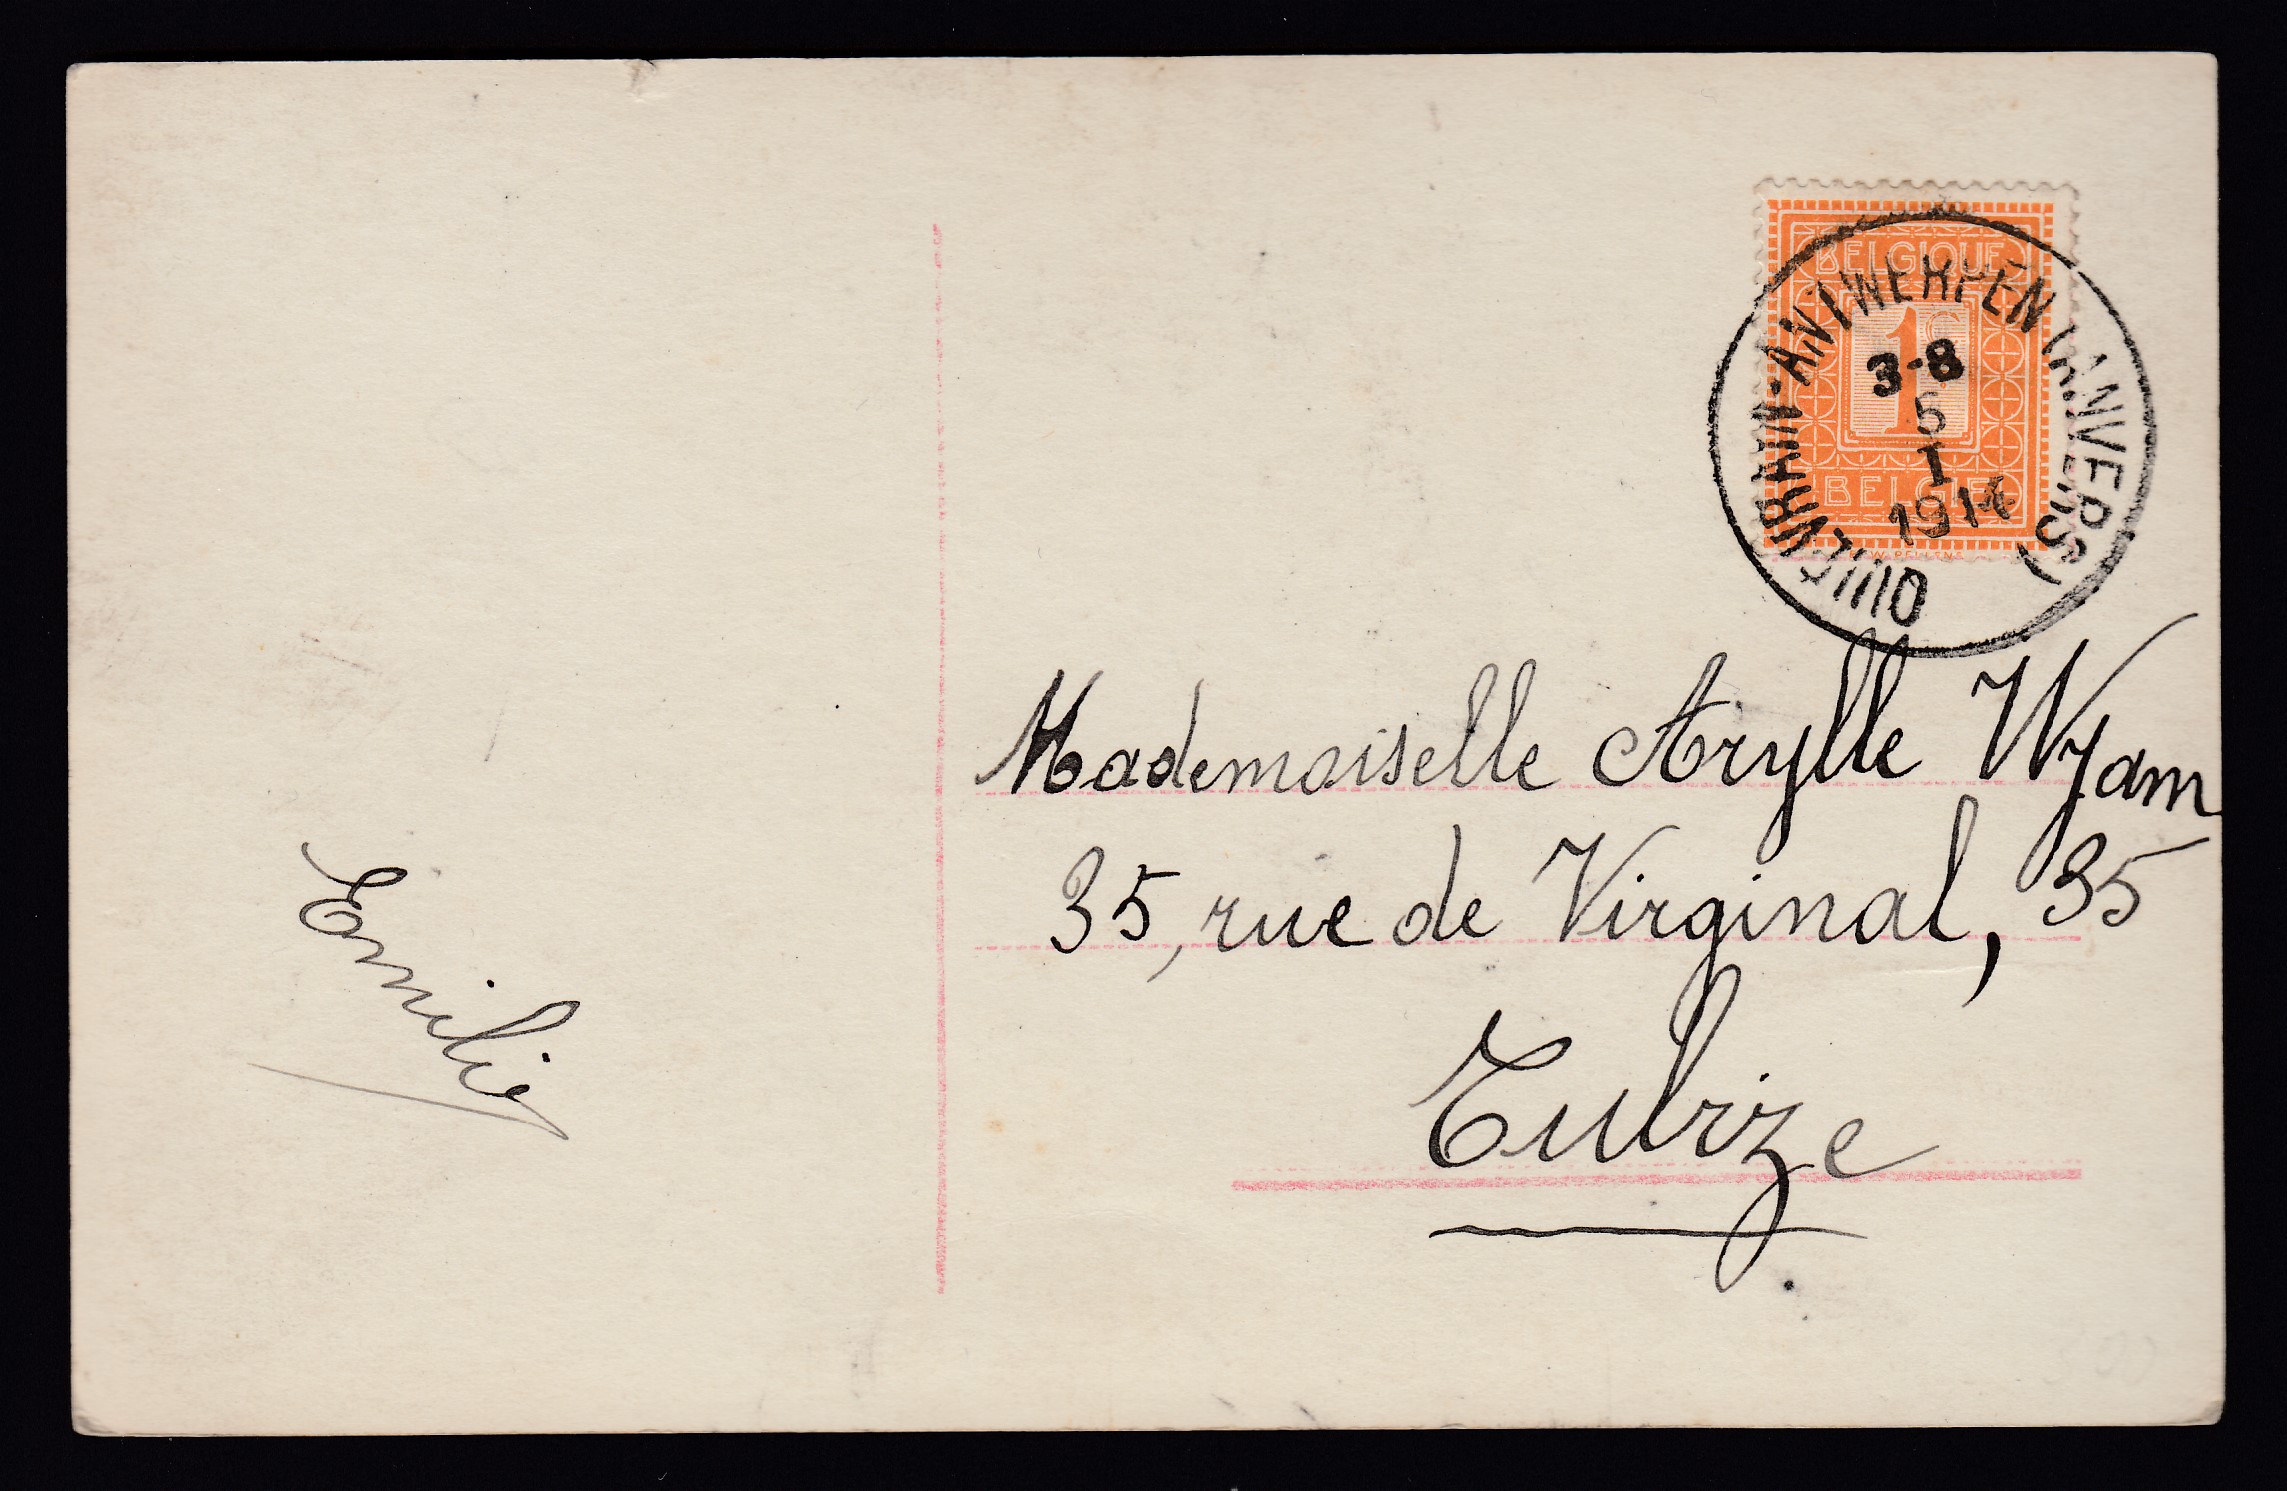 BELGIQUE
1c
BELGIË
W. PELLENS
QUIÉVRAIN-ANTWERPEN (ANVERS)
3-8
5
I
1914
Mademoiselle Arylle Wyam
35, rue de Virginal, 35
Tubize
Emilie